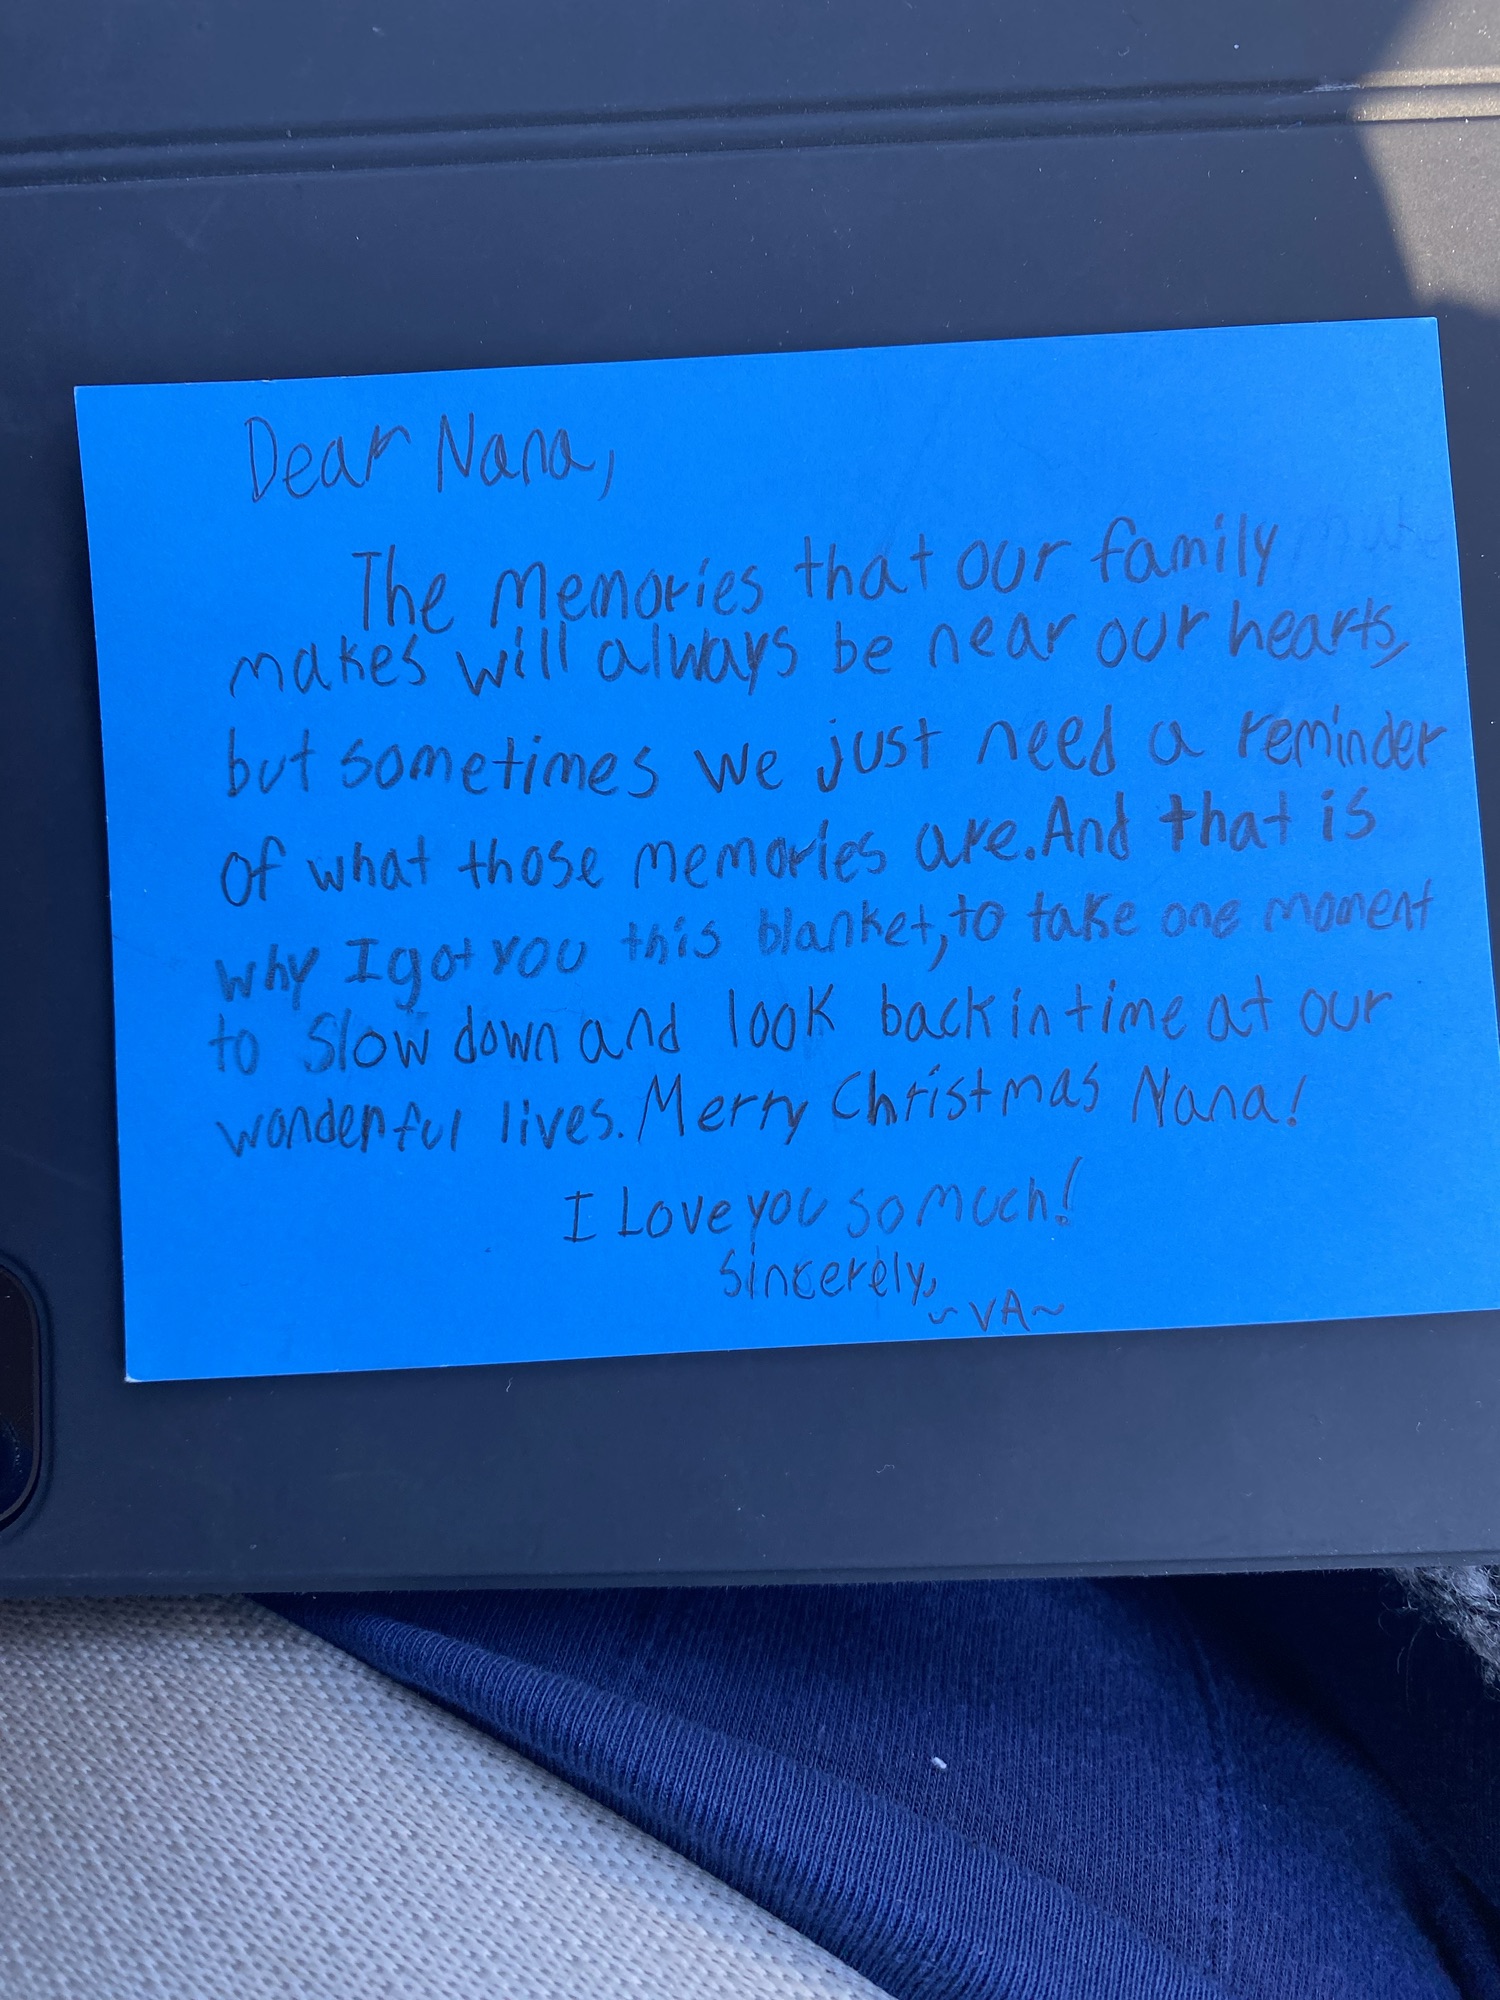 Dear Nana,
The memories that our family
makes will always be near our hearts,
but sometimes we just need a reminder
of what those memories are. And that is
why I got you this blanket, to take one moment
to slow down and look back in time at our
wonderful lives. Merry Christmas Nana!
I Love you so much!
Sincerely,
~VA~